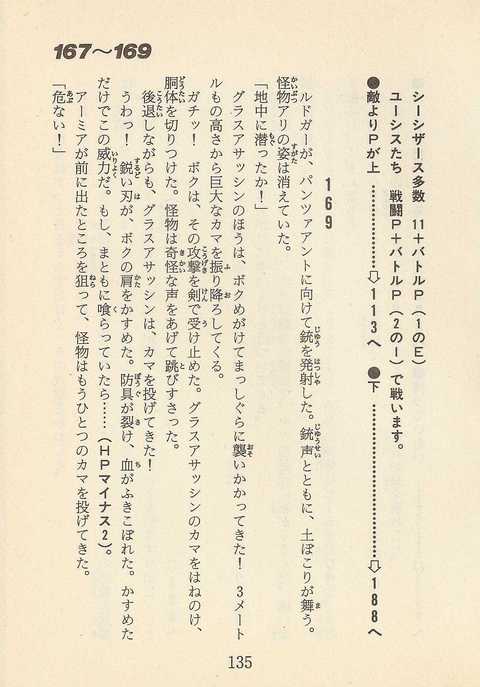 167〜169
シーシザース多数　11＋バトルP（1のE）
ユーシスたち　戦闘P＋バトルP（2のI）で戦います。
●敵よりPが上 ……………⇨113へ　●下 ……………⇨188へ
169
ルドガーが、パンツァアントに向けて銃を発射した。銃声とともに、土ぼこりが舞う。
怪物アリの姿は消えていた。
「地中に潜ったか！」
グラスアサッシンのほうは、ボクめがけてまっしぐらに襲いかかってきた！　3メート
ルもの高さから巨大なカマを振り降ろしてくる。
ガチッ！　ボクは、その攻撃を剣で受け止めた。グラスアサッシンのカマをはねのけ、
胴体を切りつけた。怪物は奇怪な声をあげて跳びすさった。
後退しながらも、グラスアサッシンは、カマを投げてきた！
うわっ！　鋭い刃が、ボクの肩をかすめた。防具が裂け、血がふきこぼれた。かすめた
だけでこの威力だ。もし、まともに喰らっていたら……（HPマイナス2）。
アーミアが前に出たところを狙って、怪物はもうひとつのカマを投げてきた。
「危ない！」
135